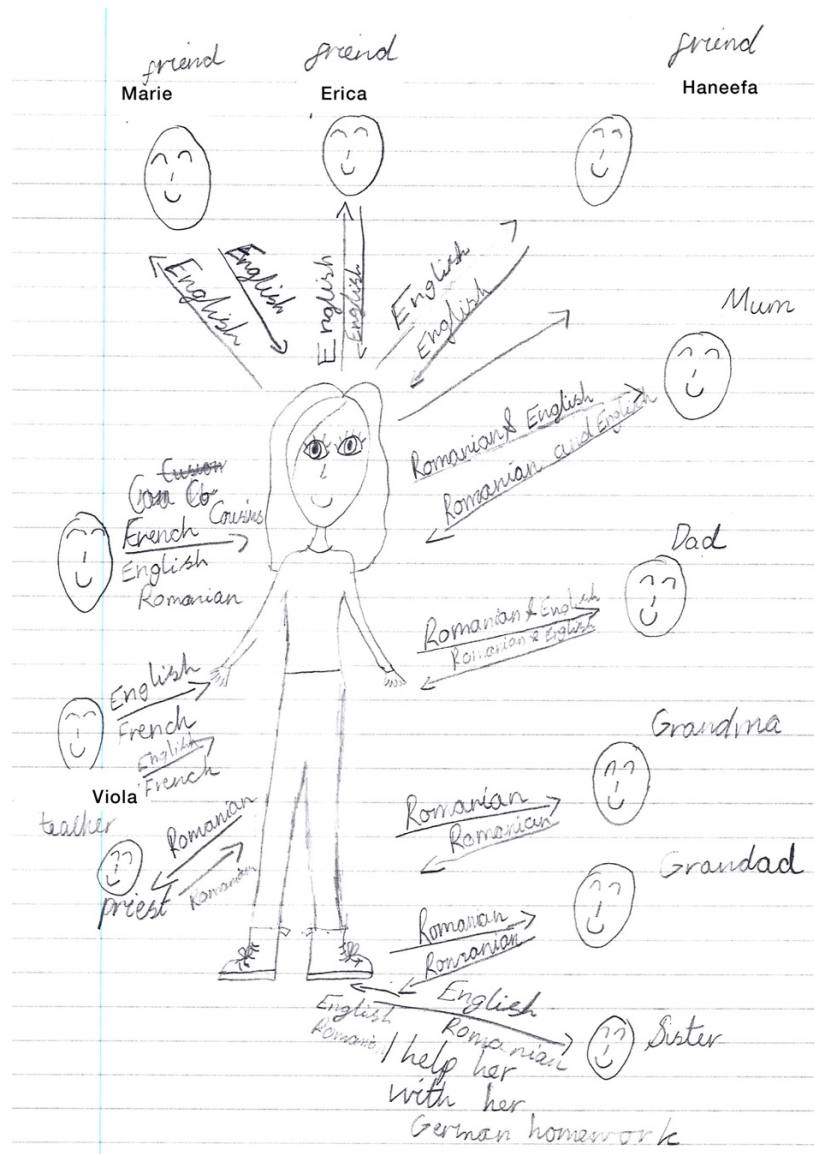 friend
Marie
friend
Erica
friend
Haneefa
English
English
English
English
English
English
Mum
Romanian & English
Romanian and English
Cousins
French
English
Romanian
Dad
Romanian & English
Romanian & English
English
French
English
French
Viola
teacher
Grandma
Romanian
Romanian
Romanian
Romanian
priest
Grandad
Romanian
Romanian
English
Romanian
English
Romanian
Sister
I help her
with her
German homework